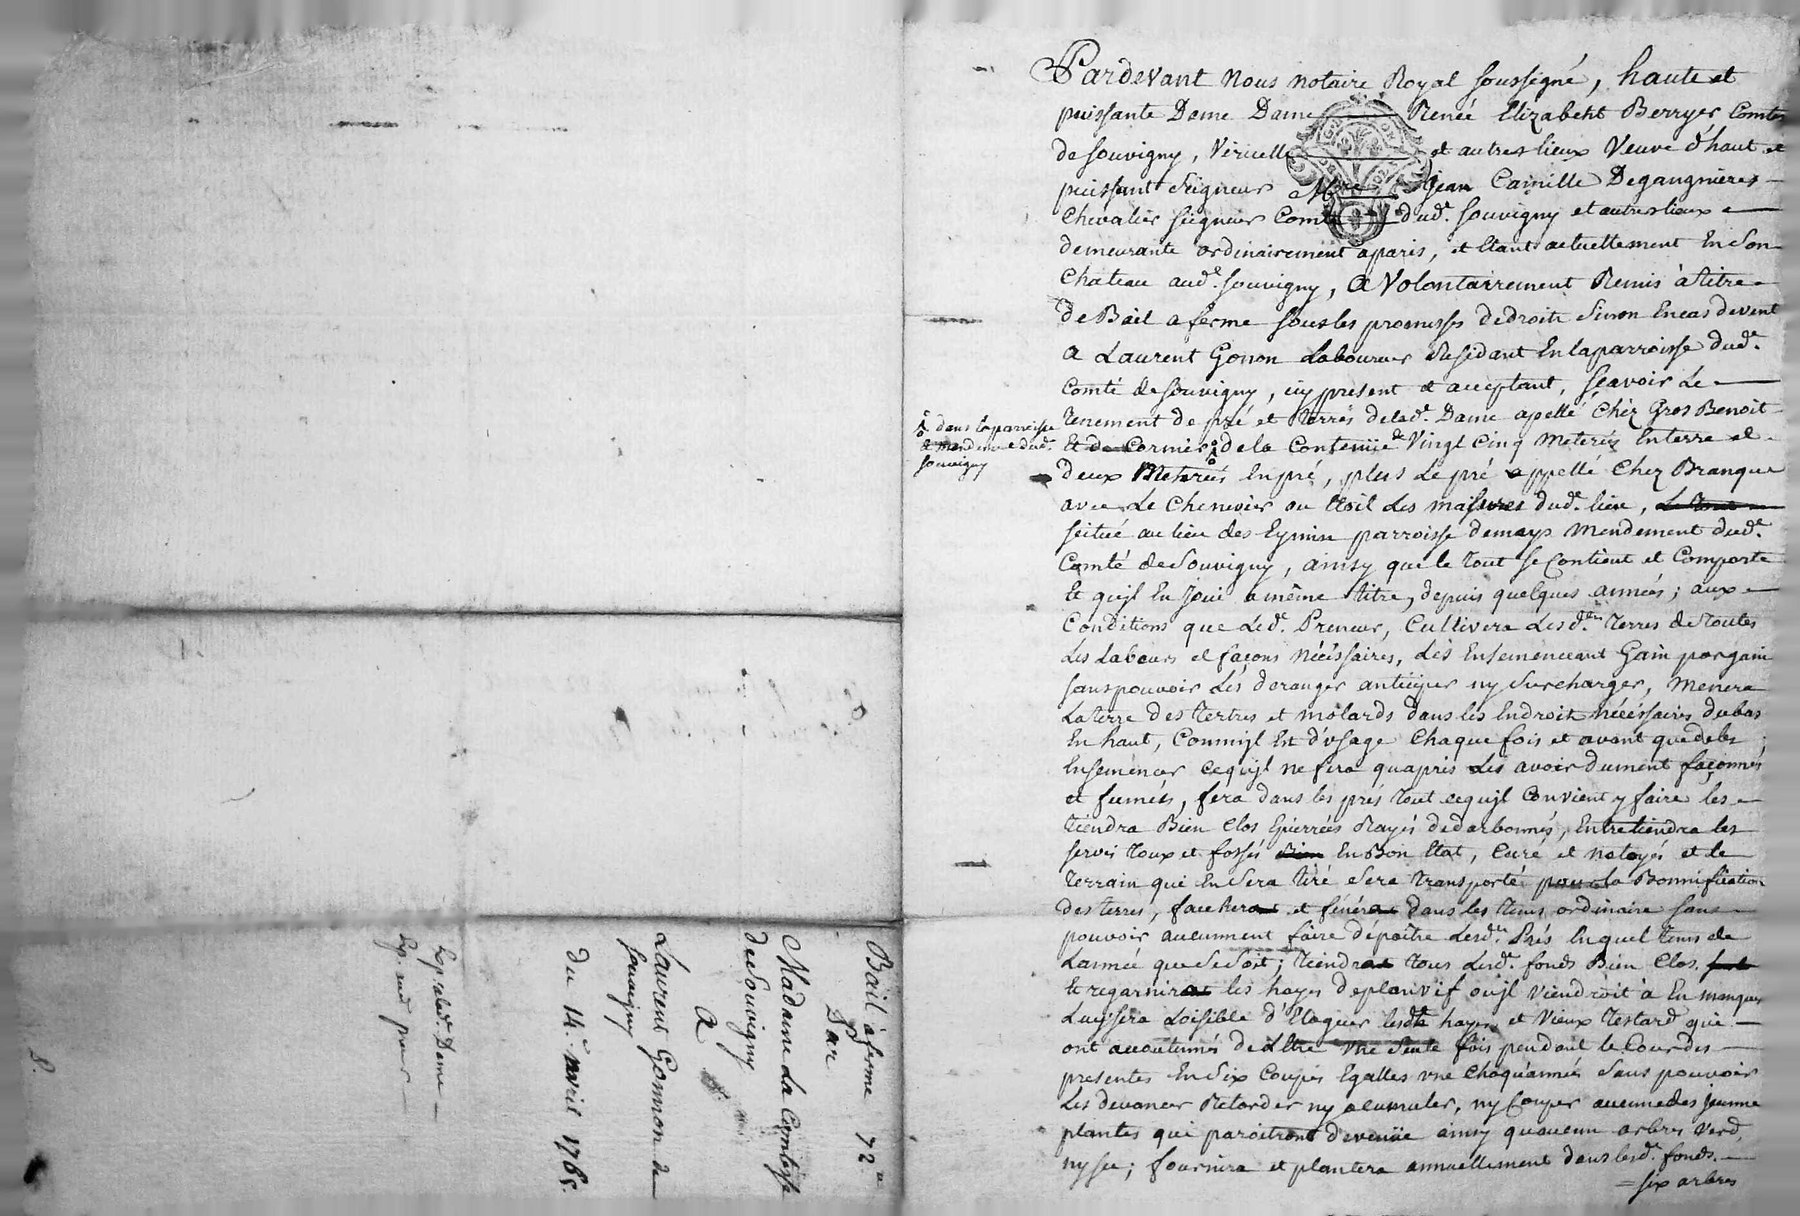 Pardevant Nous notaire Royal soussigné, haute et
puissante Dame Dame Renée Elizabeht Berryer Comtes
de souvigny, Vericelle et autres lieux Veuve d'haut et
puissant Seigneur Mre Jean Camille Degangnieres
Chevalier seigneur Comte dudt. souvigny et autres lieux
demeurante ordinairement aparis, et Etant actuellement En Son
Chateau audt. souvigny, a Volontairement Remis à titre
de Bail a ferme sous les promesses de droit Sinon En cas devent
a Laurent Gonon Laboureur Residant En la parroisse dudt.
Comté de souvigny, icy present et acceptant, sçavoir Le
Tenement de pré et Terres de lade. Dame apellé Chéz Gros Benoit
Et de Cormier de la Contenüe de Vingt Cinq Meterés En terre et
dans la paroisse
et mandement dudt.
souvigny
deux Meterées En pré, plus Le pré appellé Chez Branque
avec Le Chenevier ou Etoil des masures dudt. lieu, Le Tout
scitué au lieu des parroisse demays Mendement dudt.
Comté de Souvigny, ainsy que le tout se Contient et Comporte
Et qu'il En Joui a même titre, depuis quelques années; aux
Conditions que Ledt. Preneur, Cultivera Lesdtes. Terres de Toutes
Les Labours et façons Nécéssaires, Les Ensemenceant Gain par gain
sans pouvoir Les deranger anticiper ny Surcharger, Menera
La terre des tertres et molards dans les Endroits nécéssaires du bas
En haut, Comm'jl Est d'usage Chaque fois et avant que de les
Ensemencer ce qu'jl ne fera qu'aprés Les avoir dument façonnés
et fumées, fera dans les prés tout ce qu'jl Convient y faire les
tiendra Bien Clos Epierrées Rayés dedarbonnés, Entretiendra les
serves Toux et fossés Bien En Bon Etat, Curé et notoyés et le
Terrain qui En Sera tiré Sera transporté pour la Bonnifiation
des terres, fauchera et fénéra dans les tems ordinaire sans
pouvoir aucunement faire dépaître Lesdts. Prés En quel tems de
L'année que Se Soit; tiendra tous Lesdts. fonds Bien Clos,
Et regarnira les hayes de plan vif ou jl Viendroit à En manquer
Luy sera Loisible d'Elaguer lesdtes hayes et Vieux Testard qui
ont accoutumés de L'Etre Vne Seule fois pendant le Cour des
presentes En Six Coupes Egalles vne Chaq'année Sans pouvoir
Les devancer Retorder ny acumuler, ny Couper aucune des jeunne
plantes qui paroitront d'evenüe ainsy qu'aucun arbres Verd,
ny sec; fournira et plantera annuellement dans lesdt. fonds
= six arbres
Bail à ferme 72
Par
Madame La Comtesse
de Souvigny
A
Laurent Gonnon de
souvigny
du 14.e avril 1765.
Exp. lad. Dame
Exp. aud. preneur